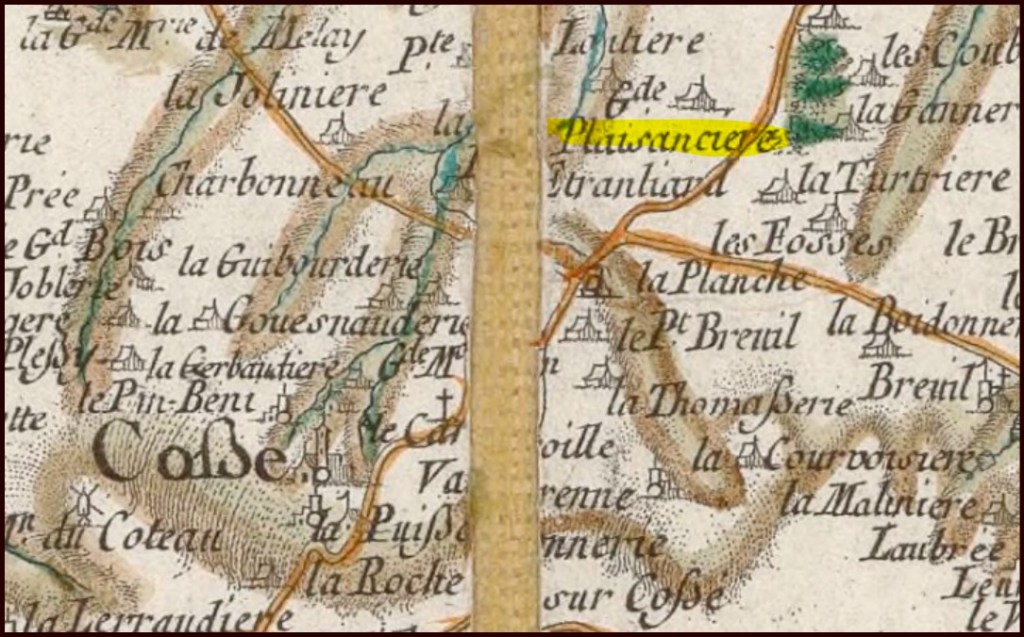 la Gde Mrie de Melay
Pte
la Joliniere
la
rie
Charbonneau
Prée
e Gd Bois
la Guibourderie
Joblerie
gere
la Gouesnauderie
Plessy
la Gerbaudiere
Gde Me
le Pin-Beni
tte
le Car
Coſse
Va
du Coteau
la Puiſse
la Roche
la Lerraudiere
les Coub
Gde
la Ganner
Plaisanciere
la Turtriere
les Fosses
le Br
la Planche
le Pt Breuil
la Boidonner
n
Breuil
la Thomaſserie
oille
la Courvoisiere
renne
la Maliniere
nnerie
Laubree
sur Coſsé